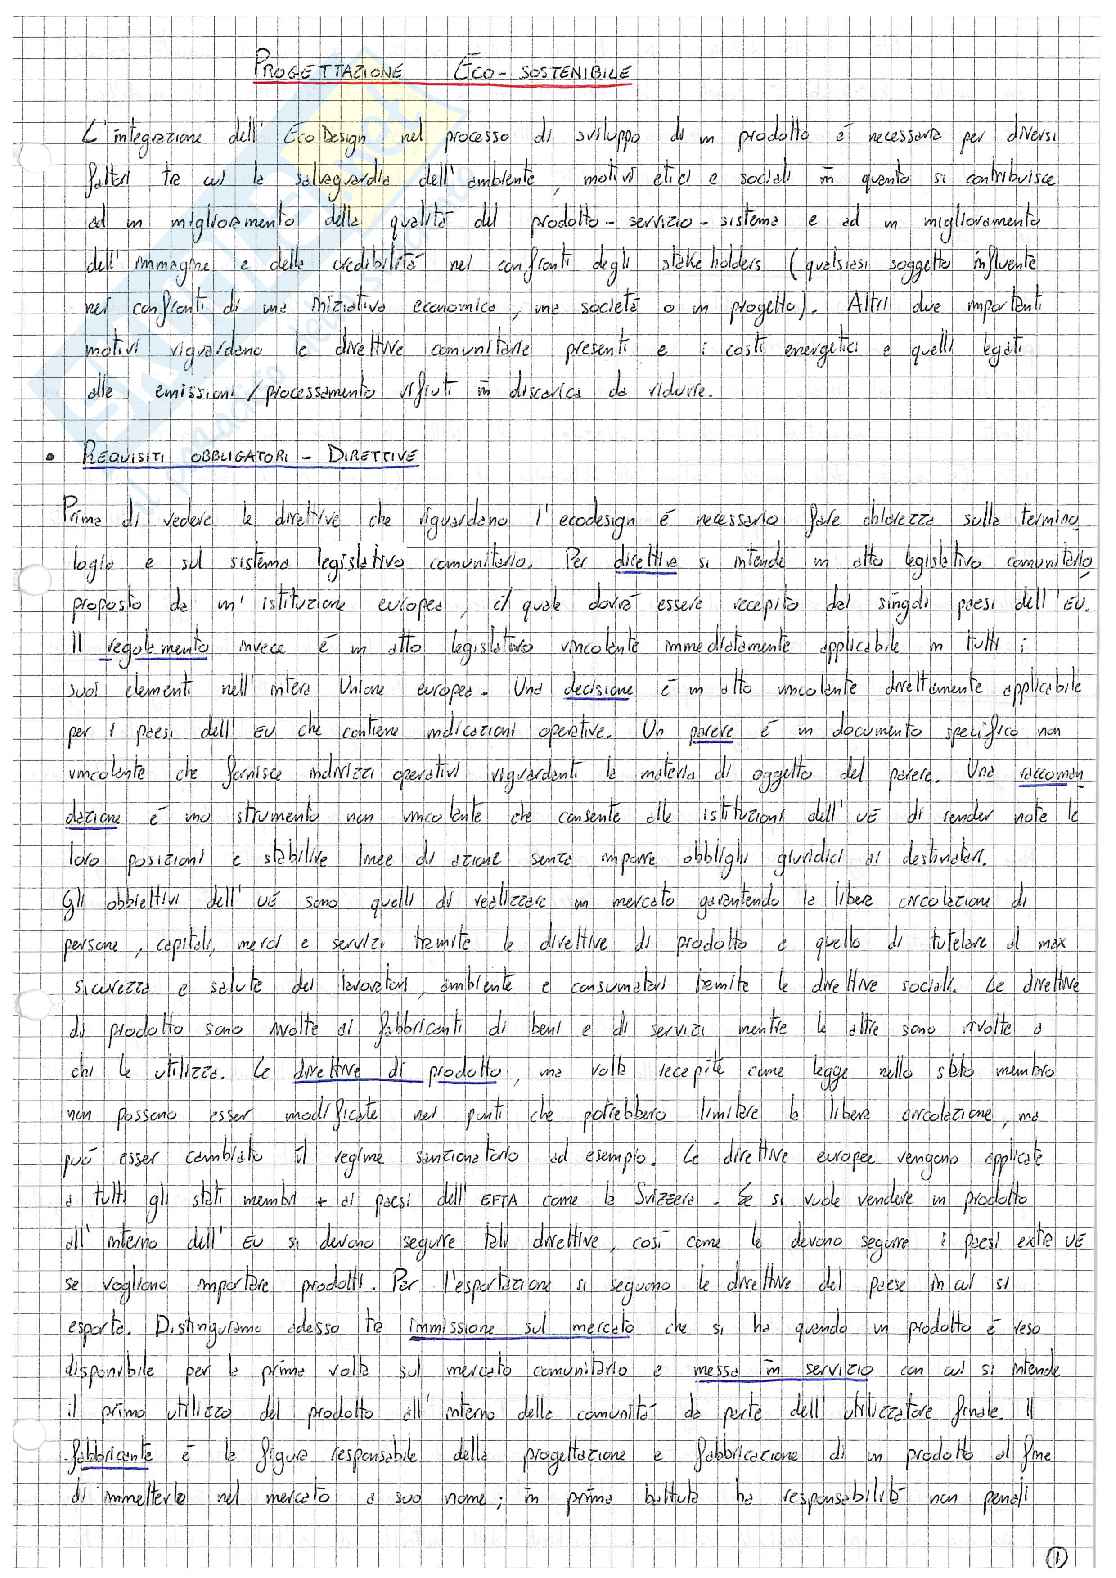 PROGETTAZIONE ECO-SOSTENIBILE
L'integrazione dell'EcoDesign nel processo di sviluppo di un prodotto é necessaria per diversi
fattori tra cui la salvaguardia dell'ambiente, motivi etici e sociali in quanto si contribuisce
ad un miglioramento della qualità del prodotto-servizio-sistema e ad un miglioramento
dell'immagine e della credibilità nei confronti degli stakeholders (qualsiasi soggetto influente
nei confronti di una iniziativa economica, una società o un progetto). Altri due importanti
motivi riguardano le direttive comunitarie presenti e i costi energetici e quelli legati
alle emissioni/processamento rifiuti in discarica da ridurre.
• REQUISITI OBBLIGATORI - DIRETTIVE
Prima di vedere le direttive che riguardano l'ecodesign é necessario fare chiarezza sulla termino
logia e sul sistema legislativo comunitario. Per direttive si intende un atto legislativo comunitario,
proposto da un'istituzione europea, il quale dovrà essere recepito dai singoli paesi dell'EU.
Il regolamento invece é un atto legislativo vincolante immediatamente applicabile in tutti i
suoi elementi nell'intera Unione europea. Una decisione é un atto vincolante direttamente applicabile
per i paesi dell'EU che contiene indicazioni operative. Un parere é un documento specifico non
vincolante che fornisce indirizzi operativi riguardanti la materia di oggetto del parere. Una raccoman
dazione é uno strumento non vincolante che consente alle istituzioni dell'UE di render note le
loro posizioni e stabilire linee di azione senza imporre obblighi giuridici ai destinatari.
Gli obbiettivi dell'UE sono quelli di realizzare un mercato garantendo la libera circolazione di
persone, capitali, merci e servizi tramite le direttive di prodotto e quello di tutelare al max
sicurezza e salute dei lavoratori, ambiente e consumatori tramite le direttive sociali. Le direttive
di prodotto sono rivolte ai fabbricanti di beni e di servizi mentre le altre sono rivolte a
chi le utilizza. Le direttive di prodotto, una volta recepite come legge nello stato membro
non possono esser modificate nei punti che potrebbero limitare la libera circolazione, ma
può esser cambiato il regime sanzionatorio ad esempio. Le direttive europee vengono applicate
a tutti gli stati membri + ai paesi dell'EFTA come la Svizzera. Se si vuole vendere un prodotto
all'interno dell'EU si devono seguire tali direttive, così come le devono seguire i paesi extra UE
se vogliono importare prodotti. Per l'esportazione si seguono le direttive del paese in cui si
esporta. Distinguiamo adesso tra immissione sul mercato che si ha quando un prodotto é reso
disponibile per la prima volta sul mercato comunitario e messa in servizio con cui si intende
il primo utilizzo del prodotto all'interno della comunità da parte dell'utilizzatore finale. Il
fabbricante é la figura responsabile della progettazione e fabbricazione di un prodotto al fine
di immetterlo nel mercato a suo nome; in prima battuta ha responsabilità non penali
1